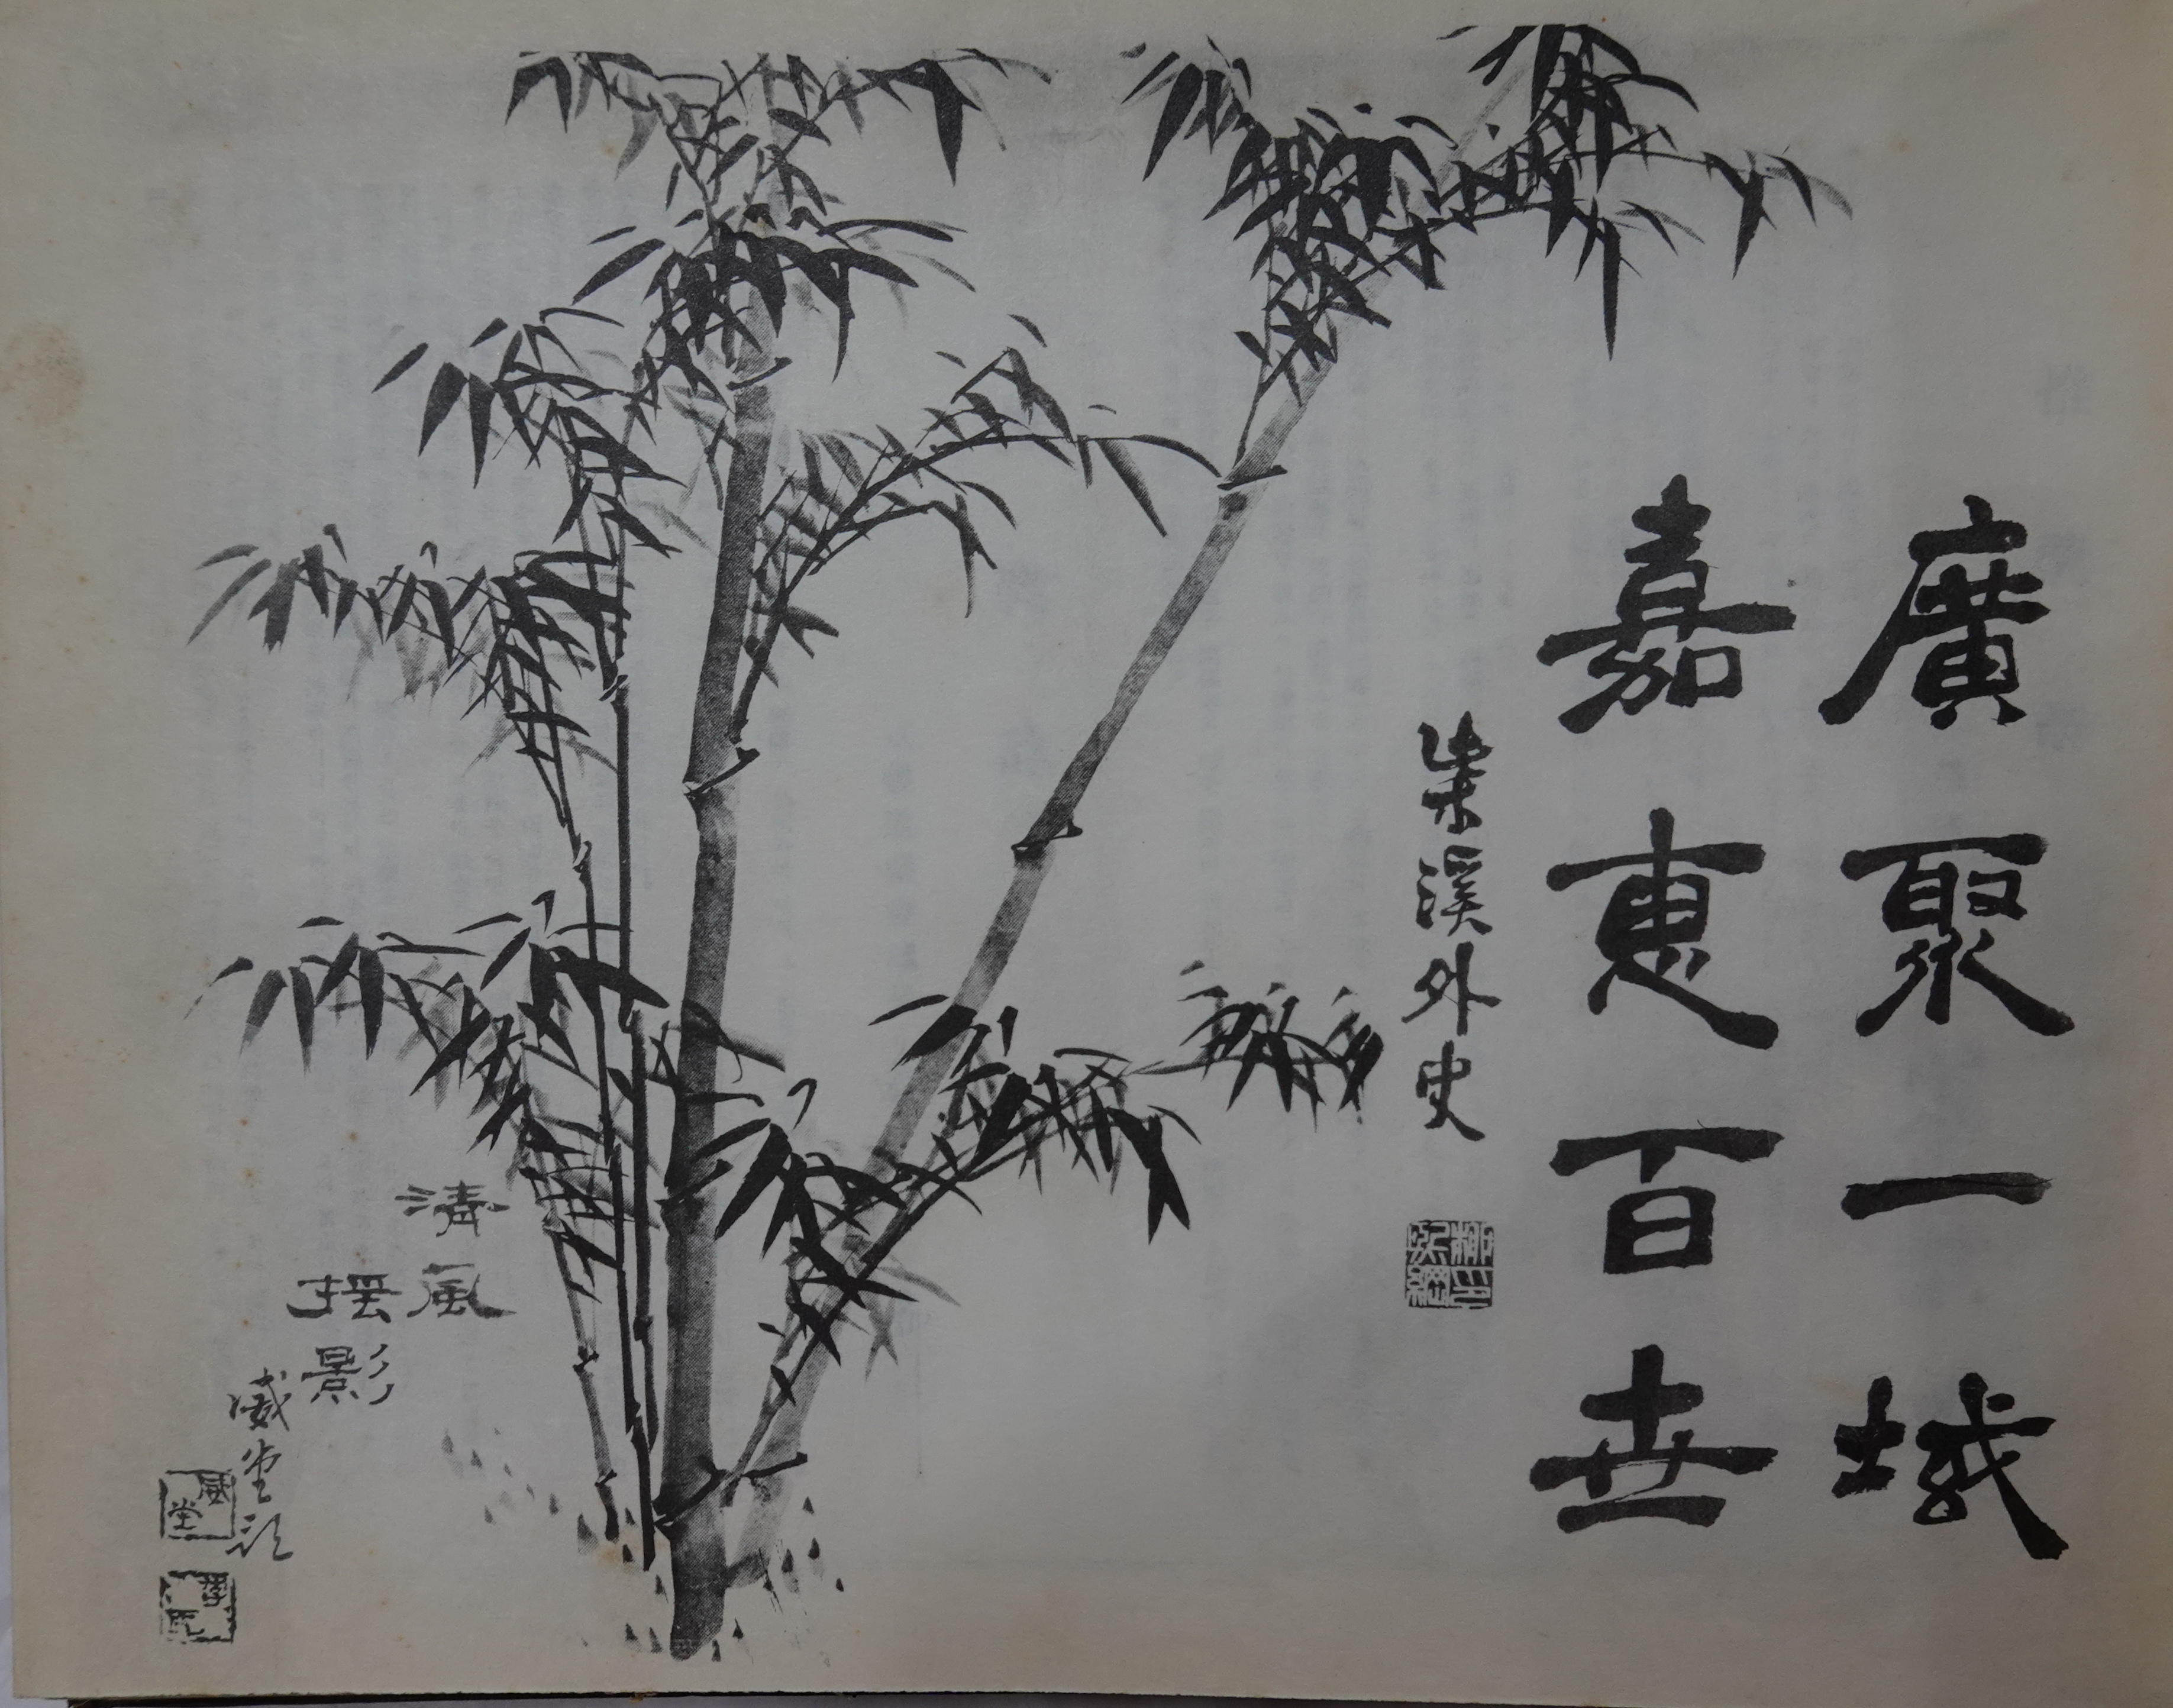 廣聚一域
嘉惠百世
柴溪外史
清風
搖影